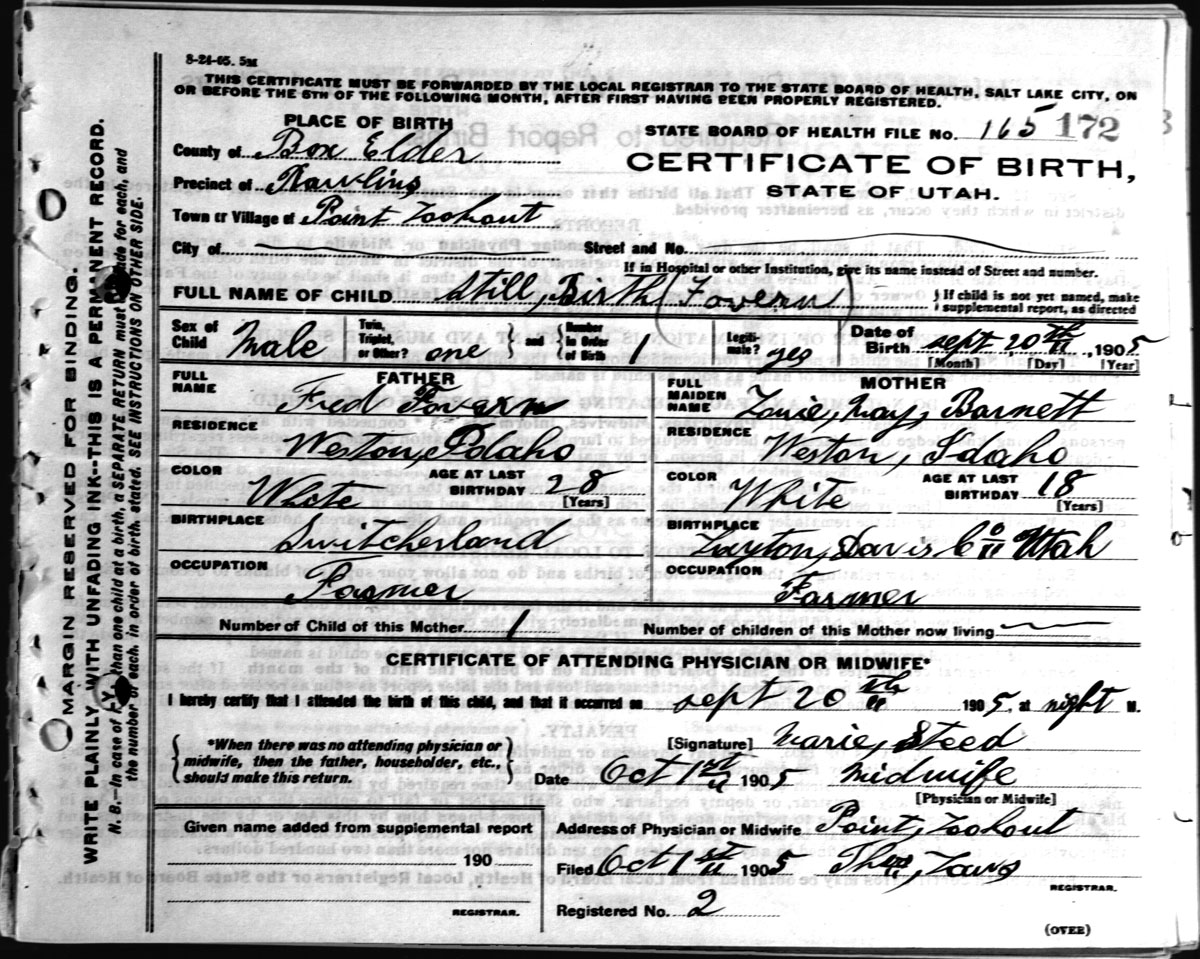 8-21-05. 5M
THIS CERTIFICATE MUST BE FORWARDED BY THE LOCAL REGISTRAR TO THE STATE BOARD OF HEALTH, SALT LAKE CITY, ON
OR BEFORE THE 5TH OF THE FOLLOWING MONTH, AFTER FIRST HAVING BEEN PROPERLY REGISTERED.
PLACE OF BIRTH
STATE BOARD OF HEALTH FILE No. 165 172
County of Box Elder
CERTIFICATE OF BIRTH,
Precinct of Rawlins
STATE OF UTAH.
Town or Village of Point Lookout
City of Street and No.
If in Hospital or other Institution, give its name instead of Street and number.
FULL NAME OF CHILD Still, Birth (Fovern) } If child is not yet named, make supplemental report, as directed
Sex of Child Male Twin, Triplet, or Other? one } and { Number in Order of Birth 1 Legitimate? yes Date of Birth sept, 20th, 1905
[Month] [Day] [Year]
FATHER MOTHER
FULL NAME Fred Fovern FULL MAIDEN NAME May, Barnett
RESIDENCE Weston, Idaho RESIDENCE Weston, Idaho
COLOR White AGE AT LAST BIRTHDAY 28 [Years] COLOR White AGE AT LAST BIRTHDAY 18 [Years]
BIRTHPLACE Switcherland BIRTHPLACE Layton, Davis Co Utah
OCCUPATION Farmer OCCUPATION Farmer
Number of Child of this Mother 1 Number of children of this Mother now living
CERTIFICATE OF ATTENDING PHYSICIAN OR MIDWIFE*
I hereby certify that I attended the birth of this child, and that it occurred on sept 20th 1905, at night M.
{ *When there was no attending physician or midwife, then the father, householder, etc., should make this return. }
[Signature] Marie, Steed
Date Oct 1st 1905 Midwife
[Physician or Midwife]
Given name added from supplemental report
Address of Physician or Midwife Point, Lookout
190
Filed Oct 1st 1905
REGISTRAR.
REGISTRAR.
Registered No. 2
(OVER)
MARGIN RESERVED FOR BINDING.
WRITE PLAINLY WITH UNFADING INK--THIS IS A PERMANENT RECORD.
N. B.--In case of than one child at a birth, a SEPARATE RETURN must made for each, and
the number of each, in order of birth, stated. SEE INSTRUCTIONS ON OTHER SIDE.